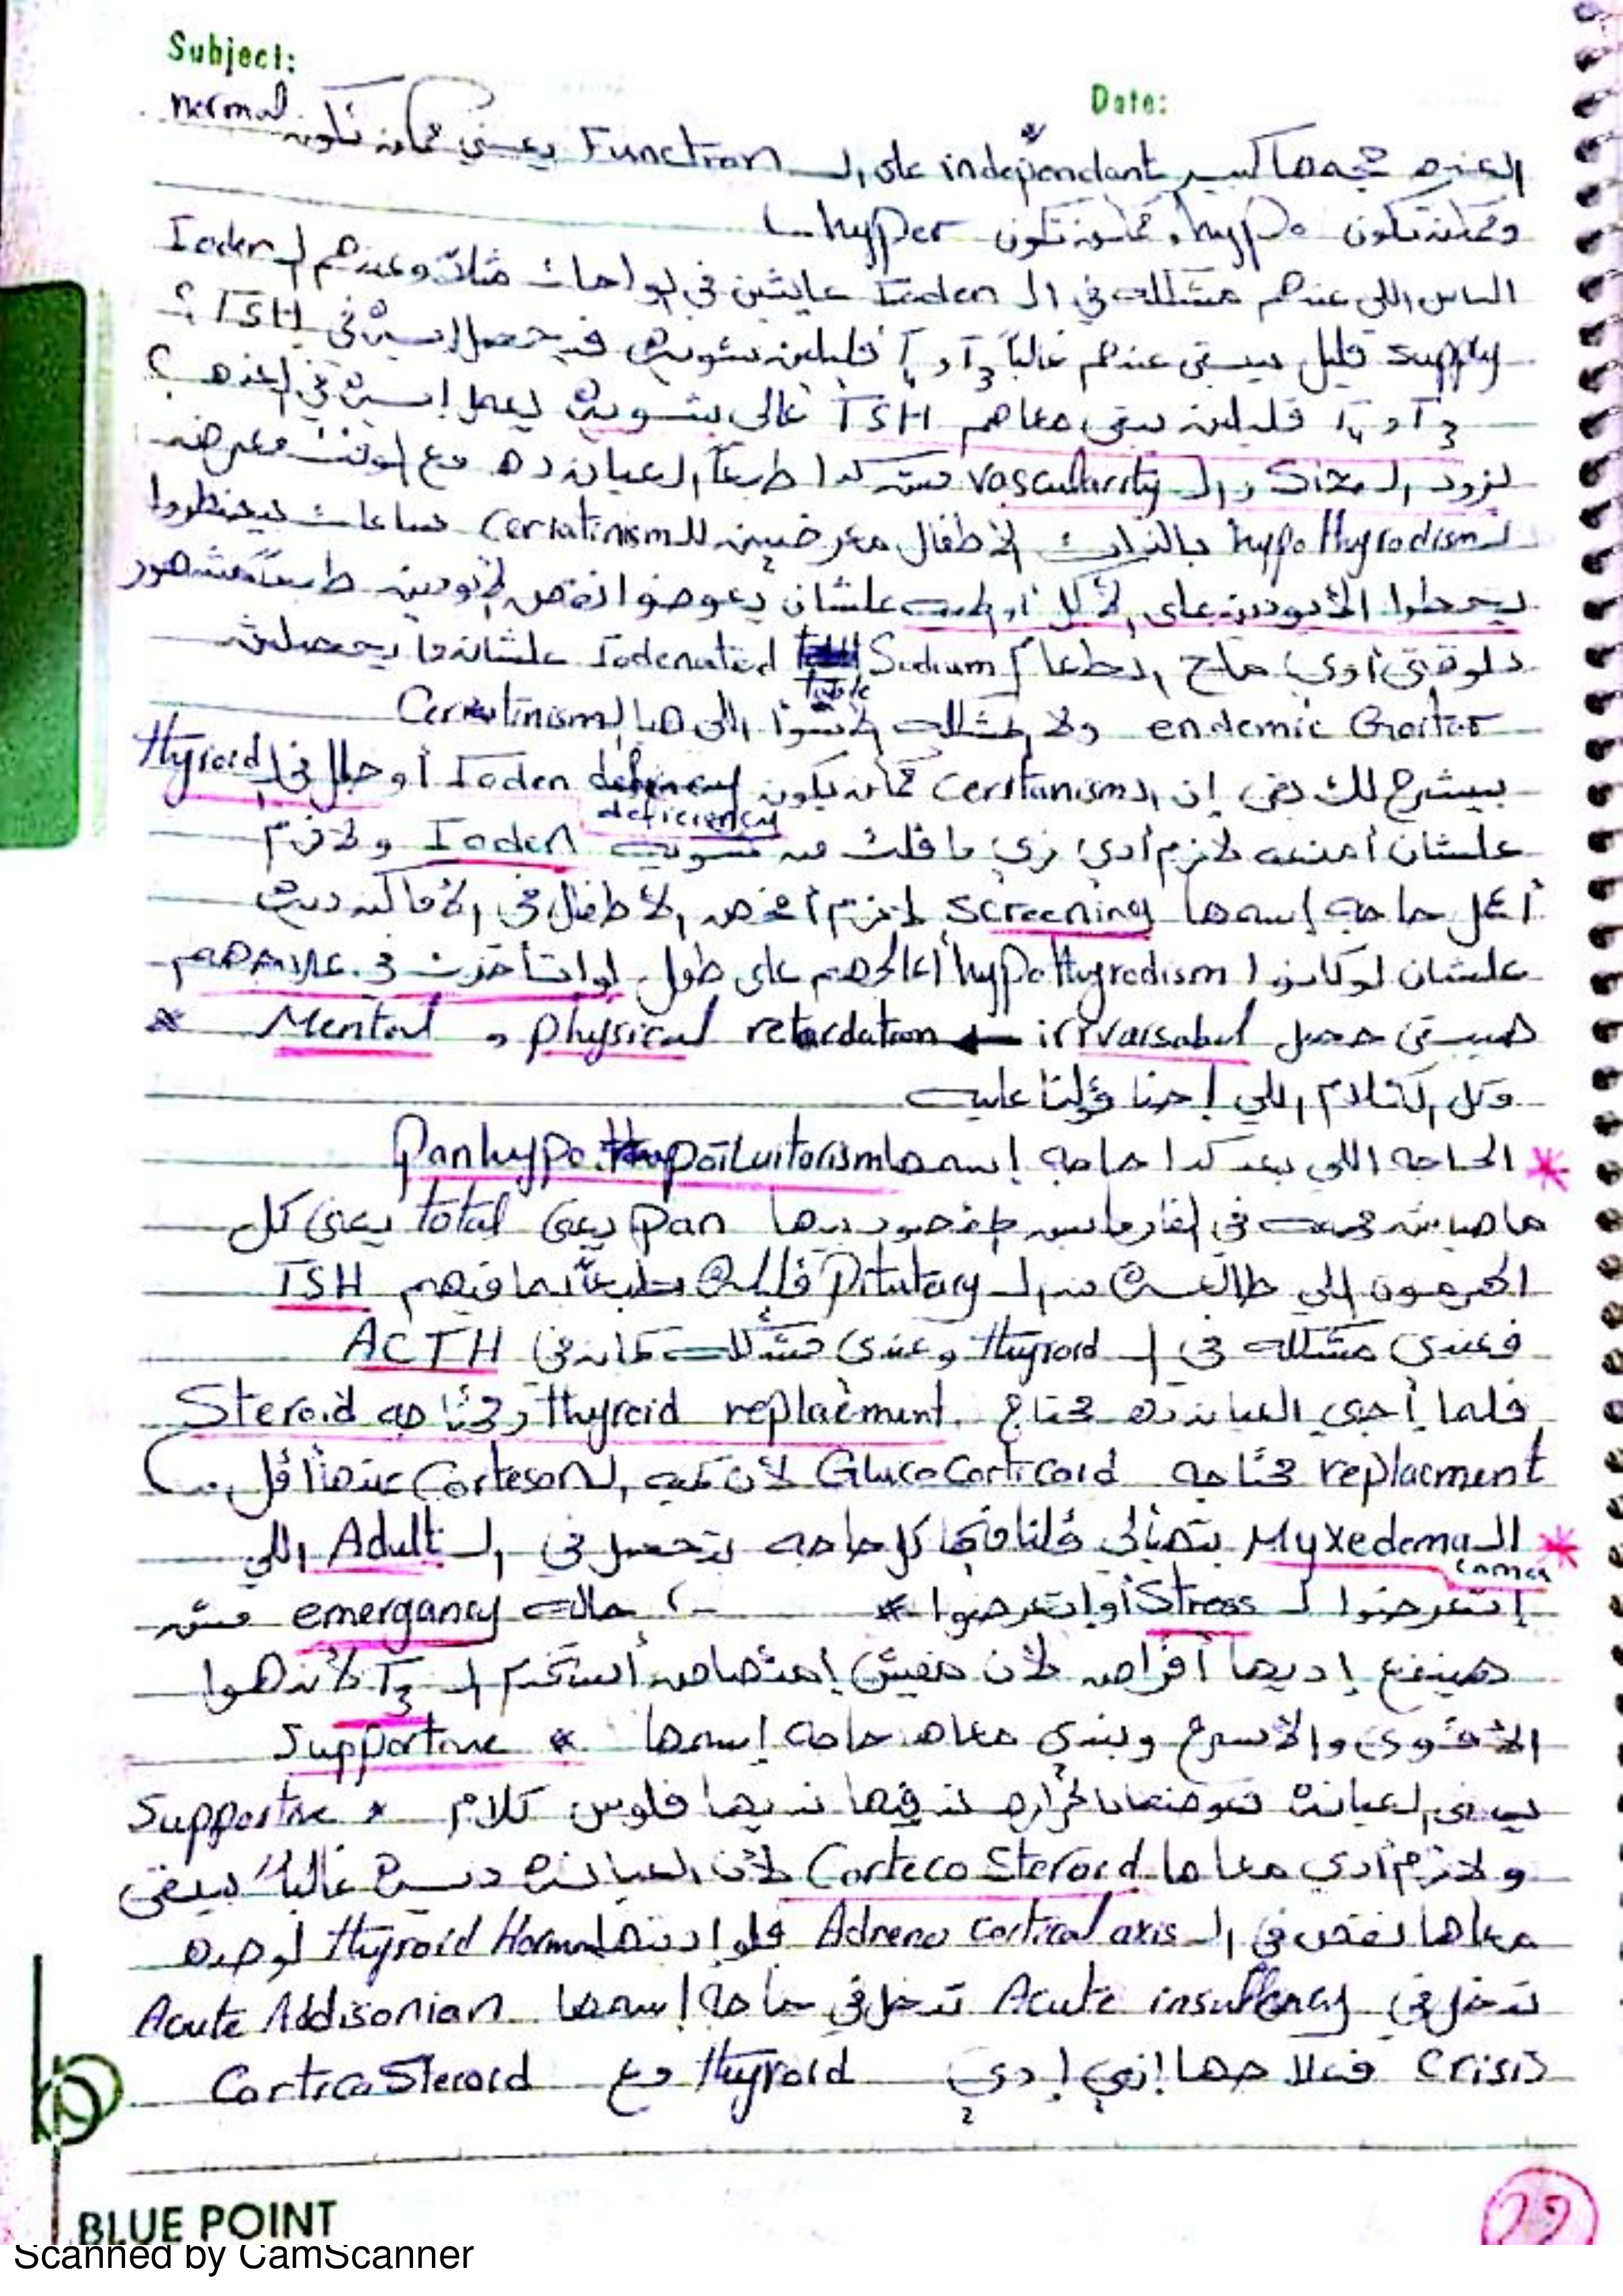 Subject:
Date:
الغده حجمها كبير independant على الـ Function يعني ممكن تكون normal
وممكن تكون hypo، ممكن تكون hyper
الناس اللي عندهم مشكله في الـ Ioden عايشين في لواحات مثلاً وعندهم الـ Ioden
supply قليل بيبقى عندهم غالباً T3 و T4 قليلين شويه فيحصل إيه في TSH؟
T3 و T4 قليلين يبقى معاهم TSH عالي شويه يعمل إيه في الغده؟
تزود الـ Size والـ vascularity مش كدا طبعاً العيان ده مع الوقت معرض
لـ hypothyrodism بالذات الأطفال معرضين للـ Ceriatinism ساعات بيضطروا
يحطوا الأيودين على الأكل أو المايه علشان يعوضوا نقص الأيودين طبعاً مشهور
دلوقتي أوي ملح الطعام Sodium Iodenated table علشان ما يحصلش
endemic Goiter ولا المشكله الأسوأ اللي هيا الـ Ceriatinism
بيشرح لك يعني إن الـ Ceritanism ممكن يكون Ioden deficiency أو خلل في الـ thyroid
deficiency
علشان أمنعه لازم أدي زي ما قلت له شويه Ioden ولازم
أعمل حاجه إسمها screening لازم أفحص الأطفال في الأماكن ديه
علشان لو كانوا hypothyrodism أعالجهم على طول لو اتأخرت في علاجهم
هيبقى حصل irrvarsabel ← retardation physical و Mental *
وكل الكلام اللي إحنا قولنا عليه
* الحاجه اللي بعد كدا حاجه إسمها Panhypopoituitarism
ماهياش صعبه في الفارما بس المقصود بيها pan يعني total يعني كل
الهرمون اللي طالعه من الـ Pitutary قليله طبعاً بما فيهم TSH
فعندي مشكله في الـ thyroid وعندي مشكله كمان في ACTH
فلما أجي العيانه ده محتاج thyroid replacement ومحتاجه Steroid
replacment محتاجه Glucocorticoid لأن كميه الـ Corteson عندها أقل
* الـ Myxedema coma بتهيألي قلنا فيها كل حاجه بتحصل في الـ Adult اللي
إتعرضوا لـ Stress أو اتعرضوا * حالة emergancy مش
هينفع إديها أقراص لأن مفيش إمتصاص أستخدم الـ T3 لأنه هوا
الأقوى والأسرع وبندي معاه حاجه إسمها * Supportive
يبقى العيانة نعوضها الحراره ندفيها نديها فلوس كلام * Supportive
ولازم أدي معاها Corteco Steroid لأن العيانه ديه غالباً بيبقى
معاها نقص في الـ Adreno Cortical axis فلو إدتها thyroid Hormon لوحده
تدخل في Acute insuffency تدخل في حاجه إسمها Acute Addisonian
Crisis فعلاجها إني إدي thyroid مع CorticoSteroid
BLUE POINT
22
Scanned by CamScanner